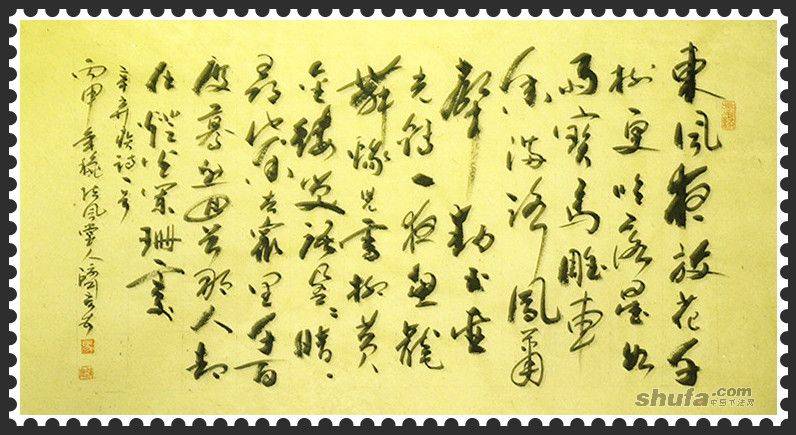 東風夜放花千
樹更吹落星如
雨寶馬雕車
香滿路鳳簫
聲動玉壺
光轉一夜魚龍
舞蛾兒雪柳黃
金縷笑語盈、暗
去衆里千百
度驀然回首那人却
在燈火闌珊處
辛弃疾詩一首
丙申年 風堂人
shufa.com
中国书法网